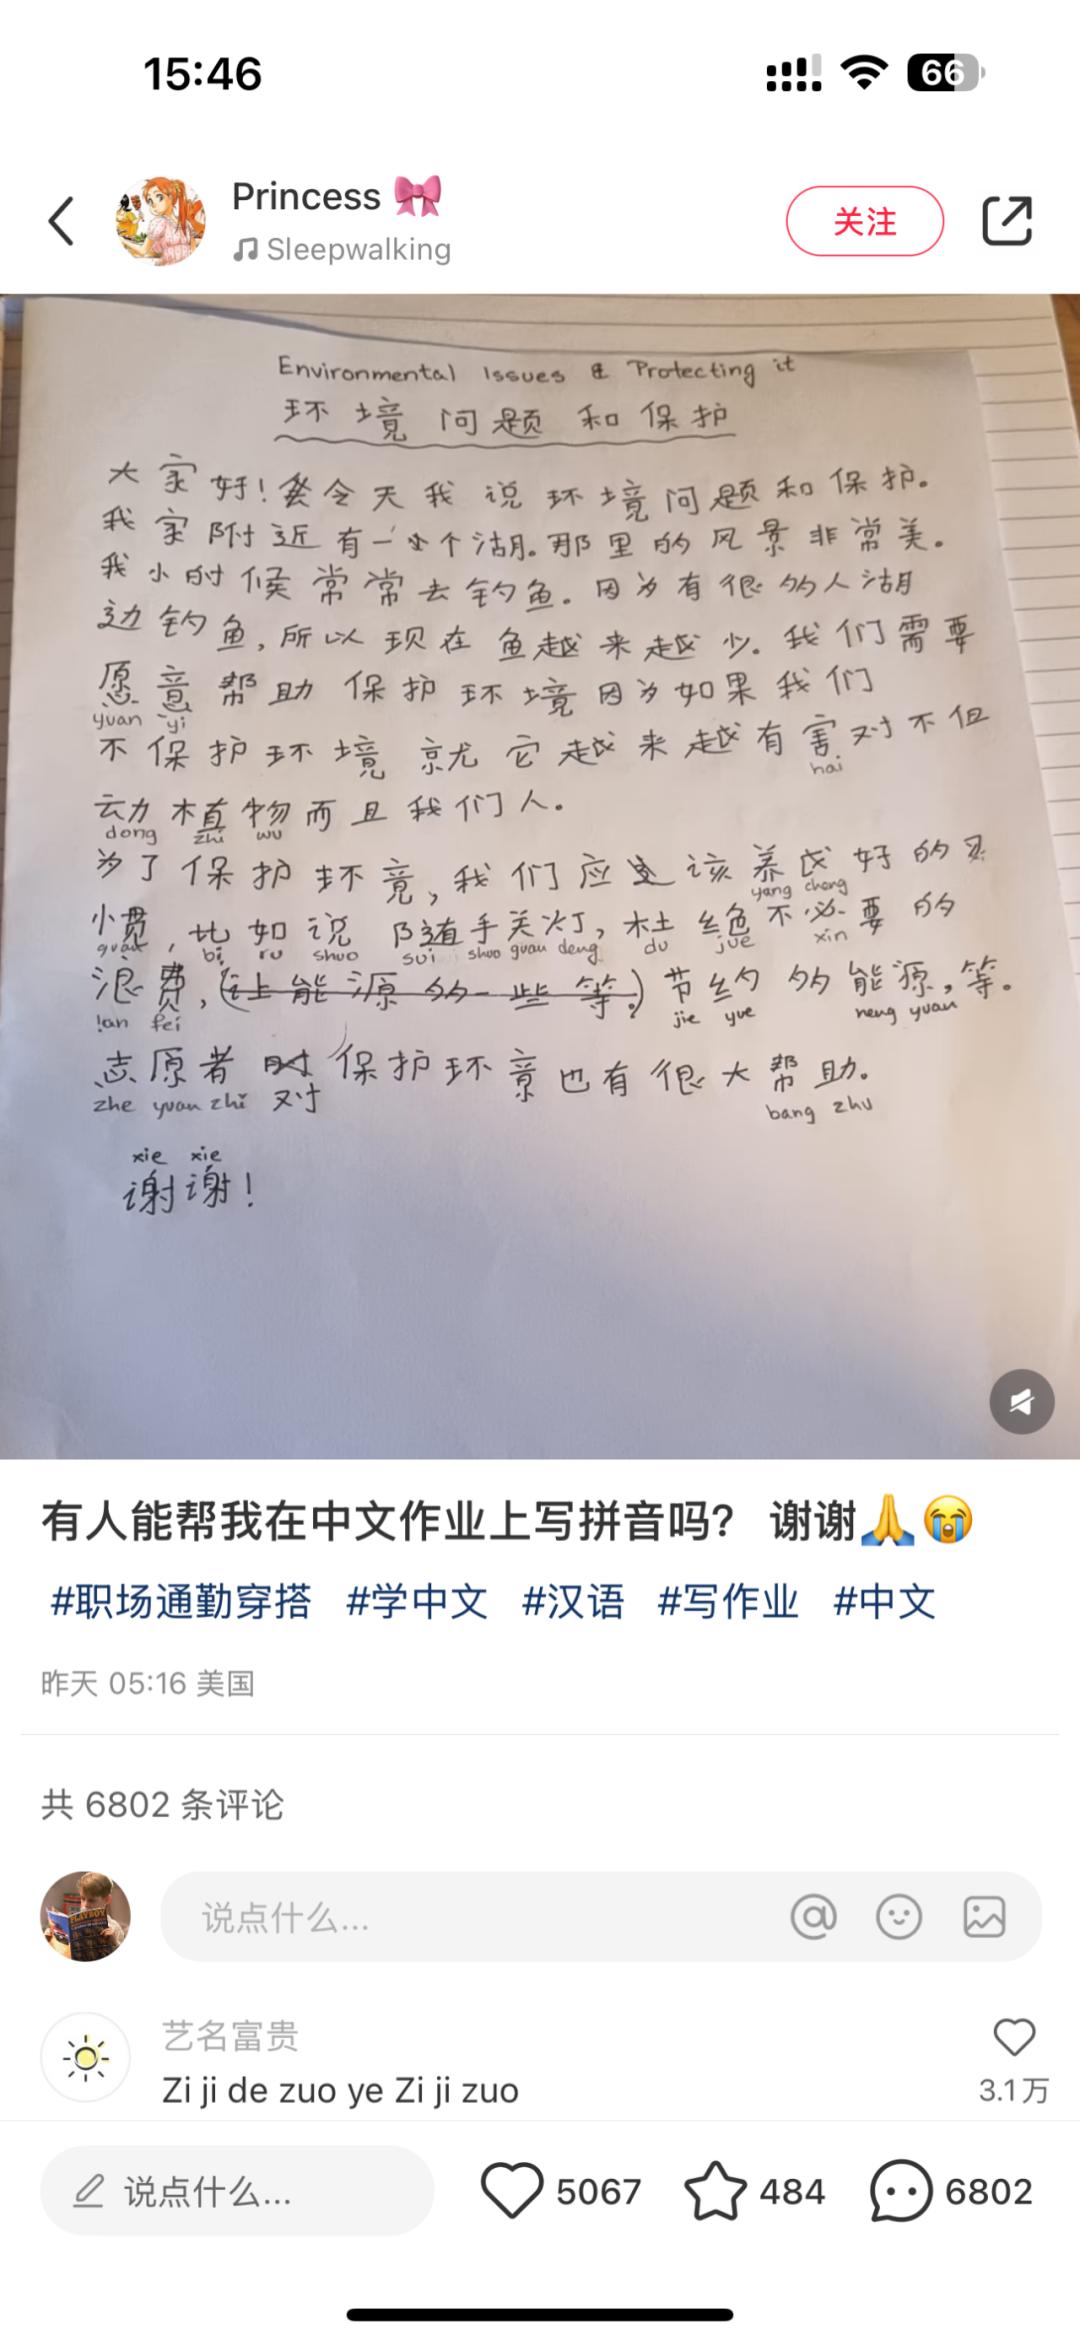 15:46
66
Princess
Sleepwalking
关注
Environmental Issues & Protecting it
环境问题和保护
大家好!今天我说环境问题和保护。
我家附近有一个湖。那里的风景非常美。
我小时候常常去钓鱼。因为有很多人湖
边钓鱼,所以现在鱼越来越少。我们需要
愿意帮助保护环境因为如果我们
yuan yi
不保护环境就它越来越有害对不但
hai
动植物而且我们人。
dong zhi wu
为了保护环竟,我们应该养成好的习
yang cheng
惯,比如说随手关灯,杜绝不必要的
guan bi ru shuo sui shuo guan deng du jue xin
浪费,(让能源多一些等。)节约多能源,等。
lan fei jie yue neng yuan
志愿者对保护环竟也有很大帮助。
zhe yuan zhi bang zhu
xie xie
谢谢!
有人能帮我在中文作业上写拼音吗? 谢谢🙏😭
#职场通勤穿搭 #学中文 #汉语 #写作业 #中文
昨天 05:16 美国
共 6802 条评论
PLAYBOY
说点什么...
艺名富贵
Zi ji de zuo ye Zi ji zuo
3.1万
说点什么...
5067
484
6802